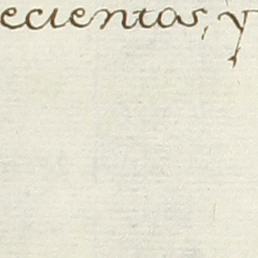 ecientas, y